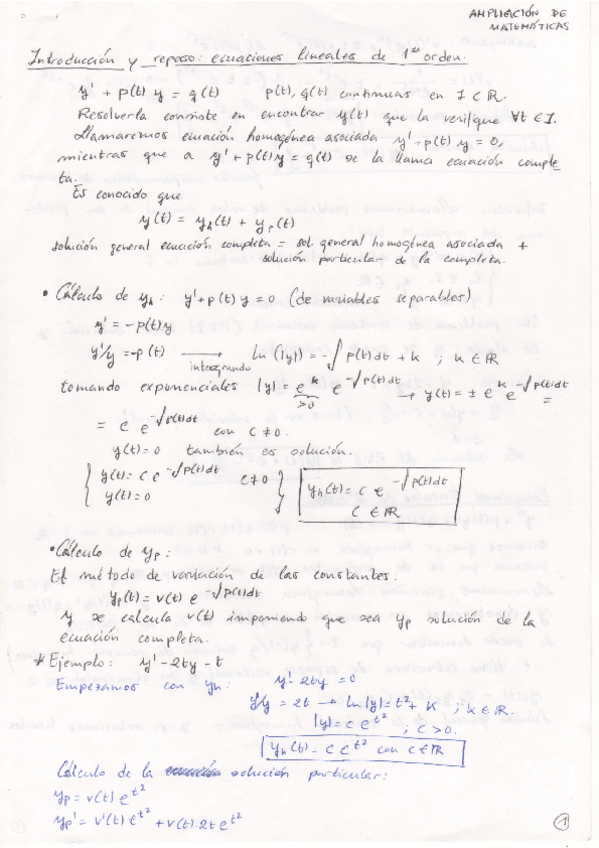 AMPLIACIÓN DE
MATEMÁTICAS
Introducción y repaso: ecuaciones lineales de 1er orden.
y' + p(t) y = q(t) p(t), q(t) continuas en I ⊂ ℝ.
Resolverla consiste en encontrar y(t) que la verifique ∀t ∈ I.
Llamaremos ecuación homogénea asociada y' + p(t) y = 0,
mientras que a y' + p(t) y = q(t) se la llama ecuación comple-
ta.
Es conocido que
y(t) = y_h(t) + y_p(t)
solución general ecuación completa = sol general homogénea asociada +
solución particular de la completa.
• Cálculo de y_h: y' + p(t) y = 0 (de variables separables)
y' = -p(t)y
y'/y = -p(t) → integrando ln(|y|) = -∫p(t)dt + k ; k ∈ ℝ
tomando exponenciales |y| = e^k e^{-∫p(t)dt} → y(t) = ± e^k e^{-∫p(t)dt} =
>0
= c e^{-∫p(t)dt} con C ≠ 0.
y(t) = 0 también es solución.
{ y(t) = c e^{-∫p(t)dt} C ≠ 0 }
{ y(t) = 0 }
y_h(t) = c e^{-∫p(t)dt}
C ∈ ℝ
• Cálculo de y_p:
El método de variación de las constantes:
y_p(t) = v(t) e^{-∫p(t)dt}
y se calcula v(t) imponiendo que sea y_p solución de la
ecuación completa.
* Ejemplo: y' - 2ty = t
Empezamos con y_h: y' - 2ty = 0
y'/y = 2t → ln|y| = t² + k ; k ∈ ℝ.
|y| = c e^{t²} ; C > 0.
y_h(t) = c e^{t²} con c ∈ ℝ
Cálculo de la solución particular:
y_p = v(t) e^{t²}
y_p' = v'(t) e^{t²} + v(t)·2t e^{t²}
1